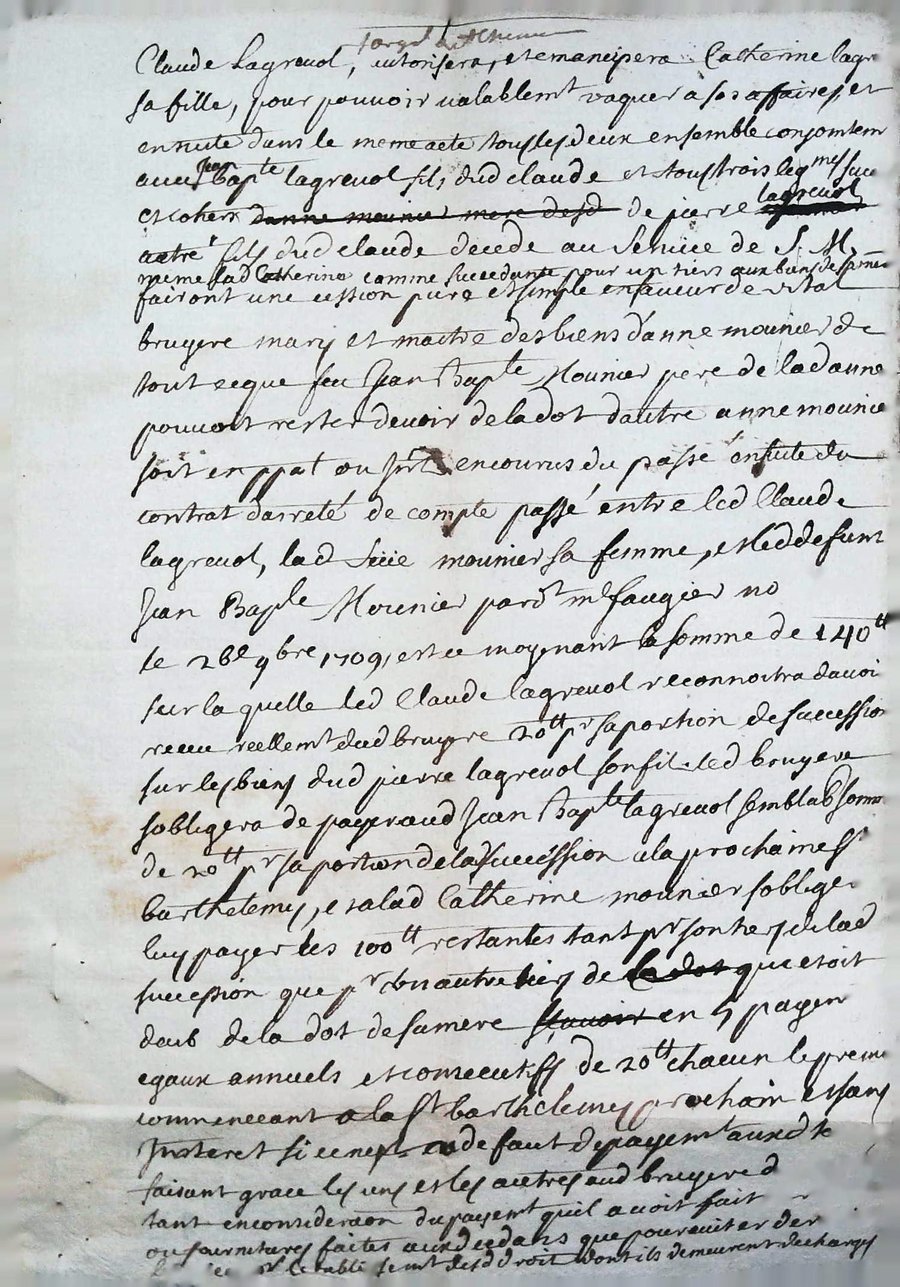 Claude Lagrevol, autorisera, et emancipera Catherine lagr
sa fille, pour pouvoir valablemt vaquer a ses affaires, et
ensuite dans le meme acte tous les deux ensemble conjointem
avec Jean Bapte lagrevol fils dud claude et tous trois
et coherr danne mounier mere desd de pierre lagrevol
autre fils dud claude decede au service de S. M.
meme lad Catherine comme succedante pour un tiers aux biens de sa mer
fairont une cession pure et simple en faveur de vital
bruyere mary et maitre des biens danne mounier de
tout ce que feu Jean Baple Mounier pere de lad anne
pouvoit rester devoir de la dot dautre anne mounie
soit en ppal ou encourus du passé ensuite du
contrat darreté de compte passé entre led Claude
lagrevol, lad mounier sa femme, et led defunt
Jean Baple Mounier pardt me faugier no
le 28e 9bre 1709, et ce moyenant la somme de 140tt
sur la quelle led Claude lagrevol reconnoitra davoi
receu reellemt dud bruyere 20tt pr sa portion de succession
sur les biens dud pierre lagrevol son fils led bruyere
sobligera de payer aud Jean Bapte lagrevol semblab somm
de 20tt pr sa portion de lad succession a la prochaine st
barthelemy, et a lad Catherine mounier soblige
luy payer les 100tt restantes tant pr son tiers de lad
succession que pr un autre tiers de la dot que etoit
deub de la dot de sa mere scavoir en 5 payen
egaux annuels et consecutifs de 20tt chacun le premie
commenceant a la st barthelemy prochain et sans
Interet si ce nest a defaut de payemt
faisant grace les uns et les autres aud bruyere d
tant en consideraon du payemt quil avoit fait
ou fournitures faites que poursuiter
droit dont ils demeurent decharges